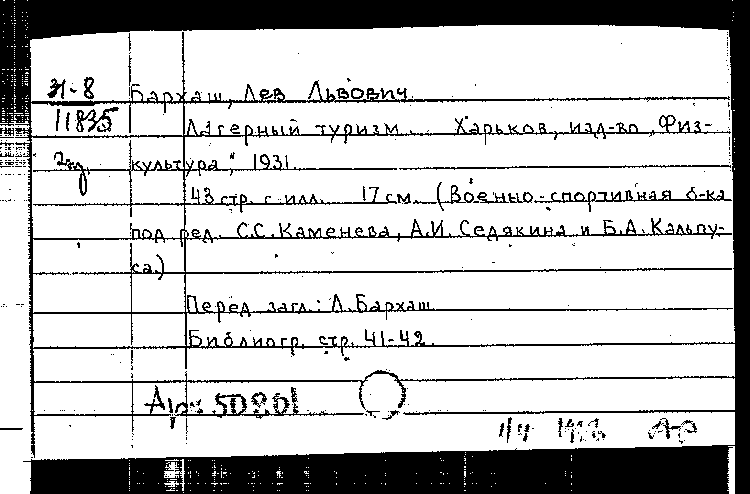 Бархаш, Лев Львович.
11835
Лагерный туризм. Харьков, изд-во „Физ-
культура", 1931.
43 стр. с илл. 17 см. (Военно-спортивная б-ка
под ред. С.С. Каменева, А.И. Седякина и Б.А. Кальпу-
са.)
Перед загл.: Л. Бархаш.
Библиогр. стр. 41-42.